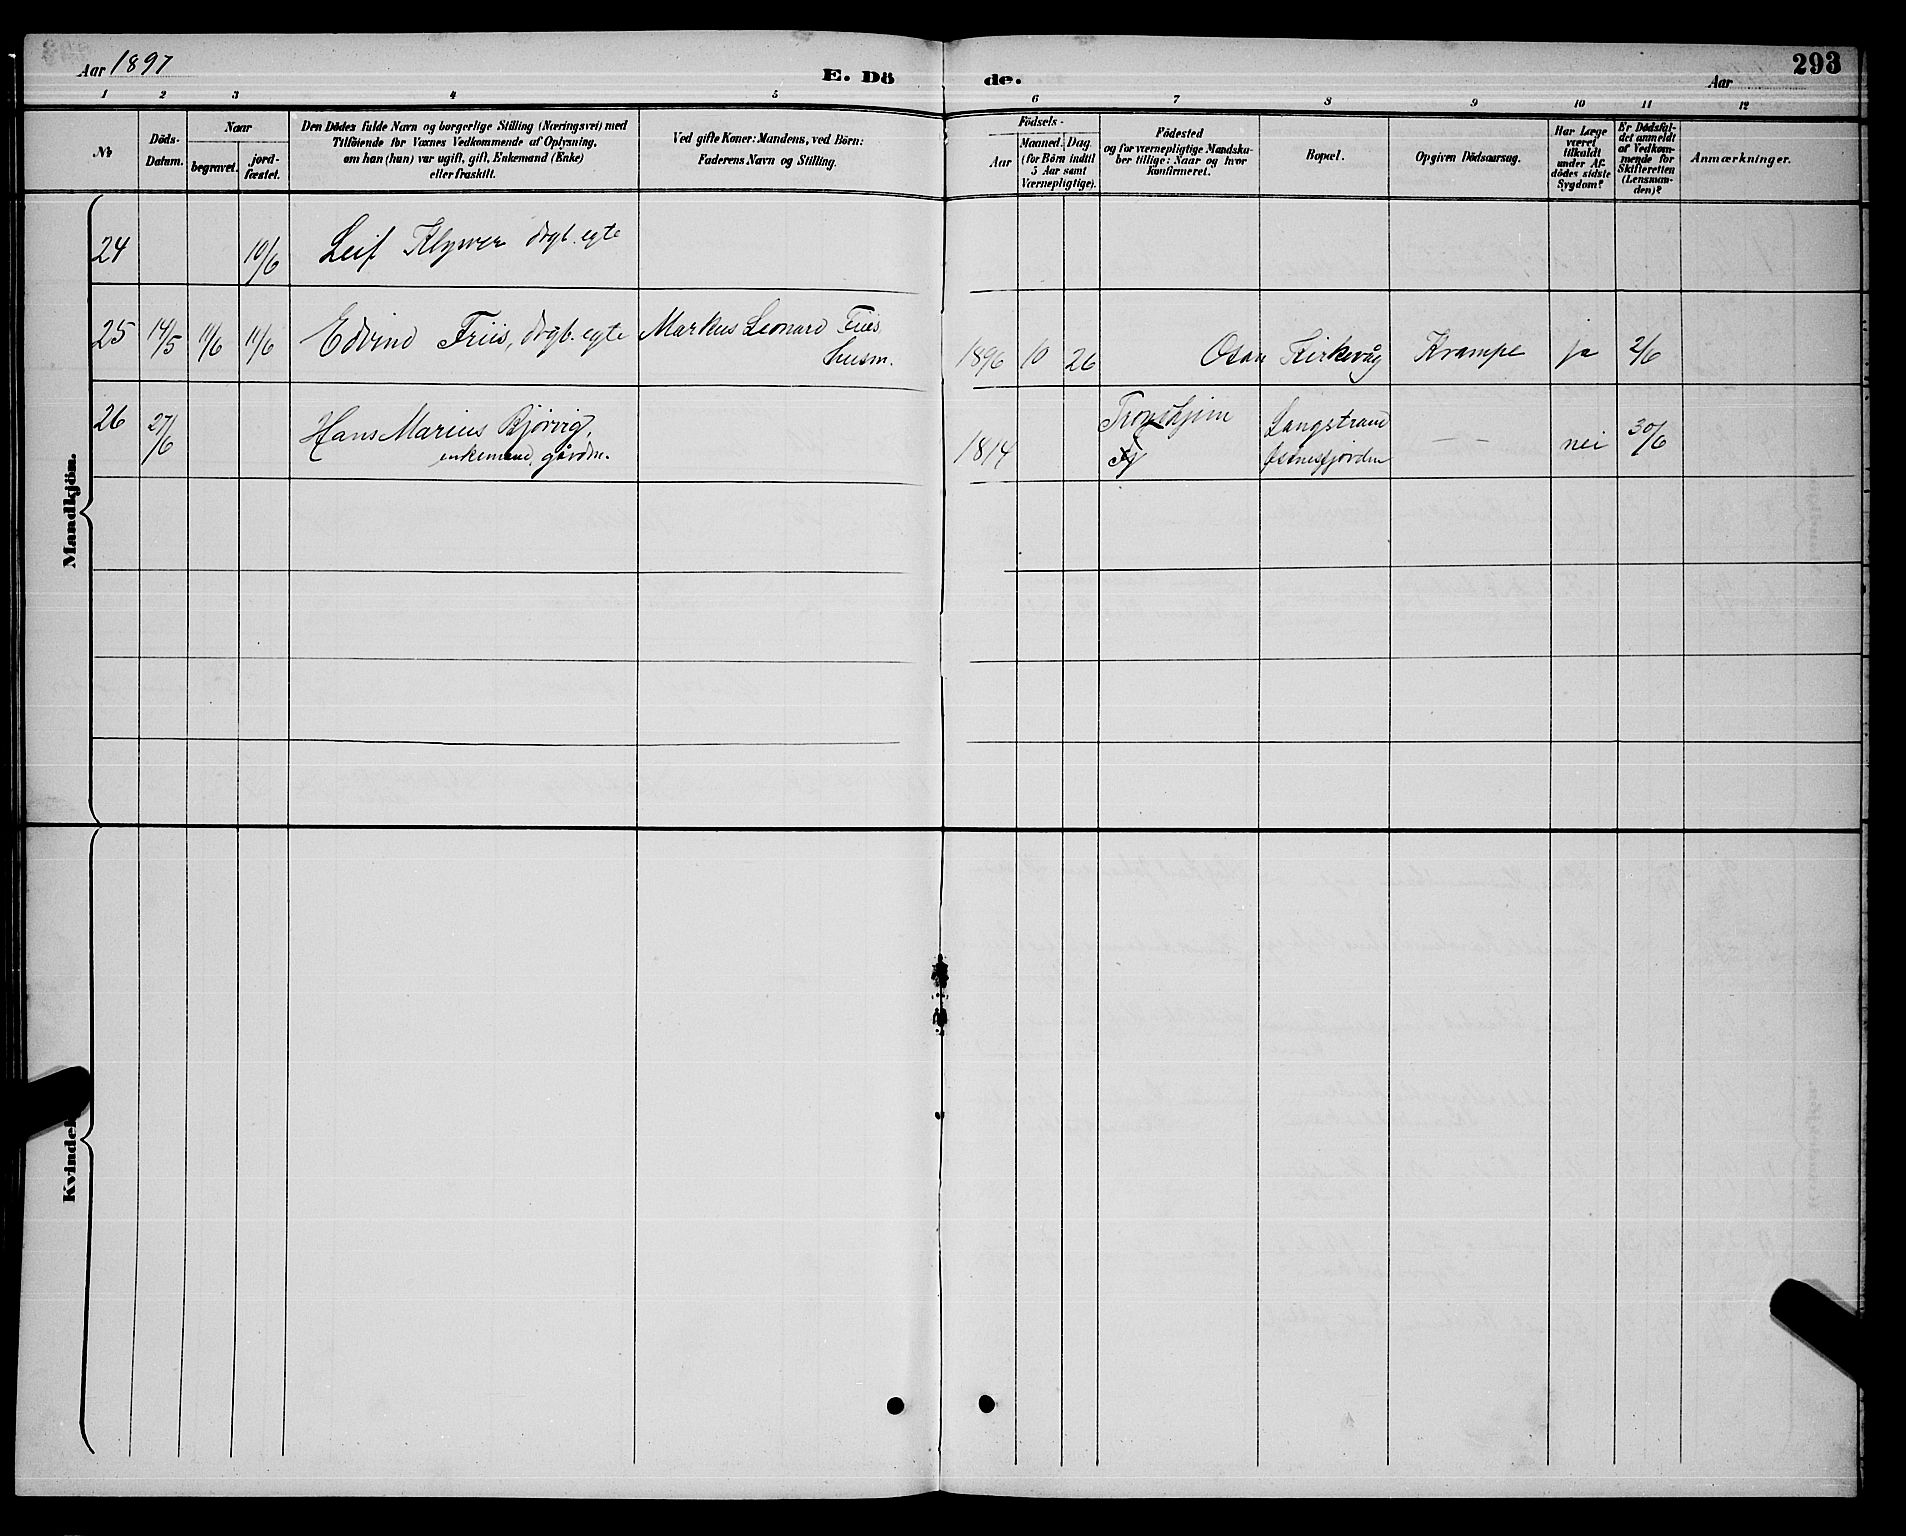 Aar 1897
E. Dö de.
Aar
293
1 2 3 4 5 6 7 8 9 10 11 12
No
Döds-
Datum.
Naar
begravet.
jord-
fæstet.
Den Dödes fulde Navn og borgerlige Stilling (Næringsvei) med
Tilföiende for Voxnes Vedkommende af Oplysning,
om han (hun) var ugift, gift, Enkemand (Enke)
eller fraskilt.
Ved gifte Koner: Mandens, ved Börn:
Faderens Navn og Stilling.
Födsels-
Aar
Maaned. Dag.
(for Börn indtil
5 Aar samt
Værnepligtige).
Födested
og for værnepligtige Mandska-
ber tillige: Naar og hvor
konfirmeret.
Bopæl.
Opgiven Dödsaarsag.
Har Læge
været
tilkaldt
under Af-
dödes sidste
Sygdom?
Er Dödsfal-
det anmeldt
af Vedkom-
mende for
Skifteretten
(Lensman-
den)?
Anmærkninger.
Mandkjön.
24 10/6 Leif Klyver drgb. egte
25 14/5 11/6 11/6 Edvind Friis, drgb. egte Markus Leonard Friis
husm.
1896 10 26 Osan Kirkevåg Krampe ja 2/6
26 27/6 Hans Marius Bjørvig,
enkemand, gårdm.
1814 Trondhjem Langstrand
Øxnesfjorden — — nei 30/6